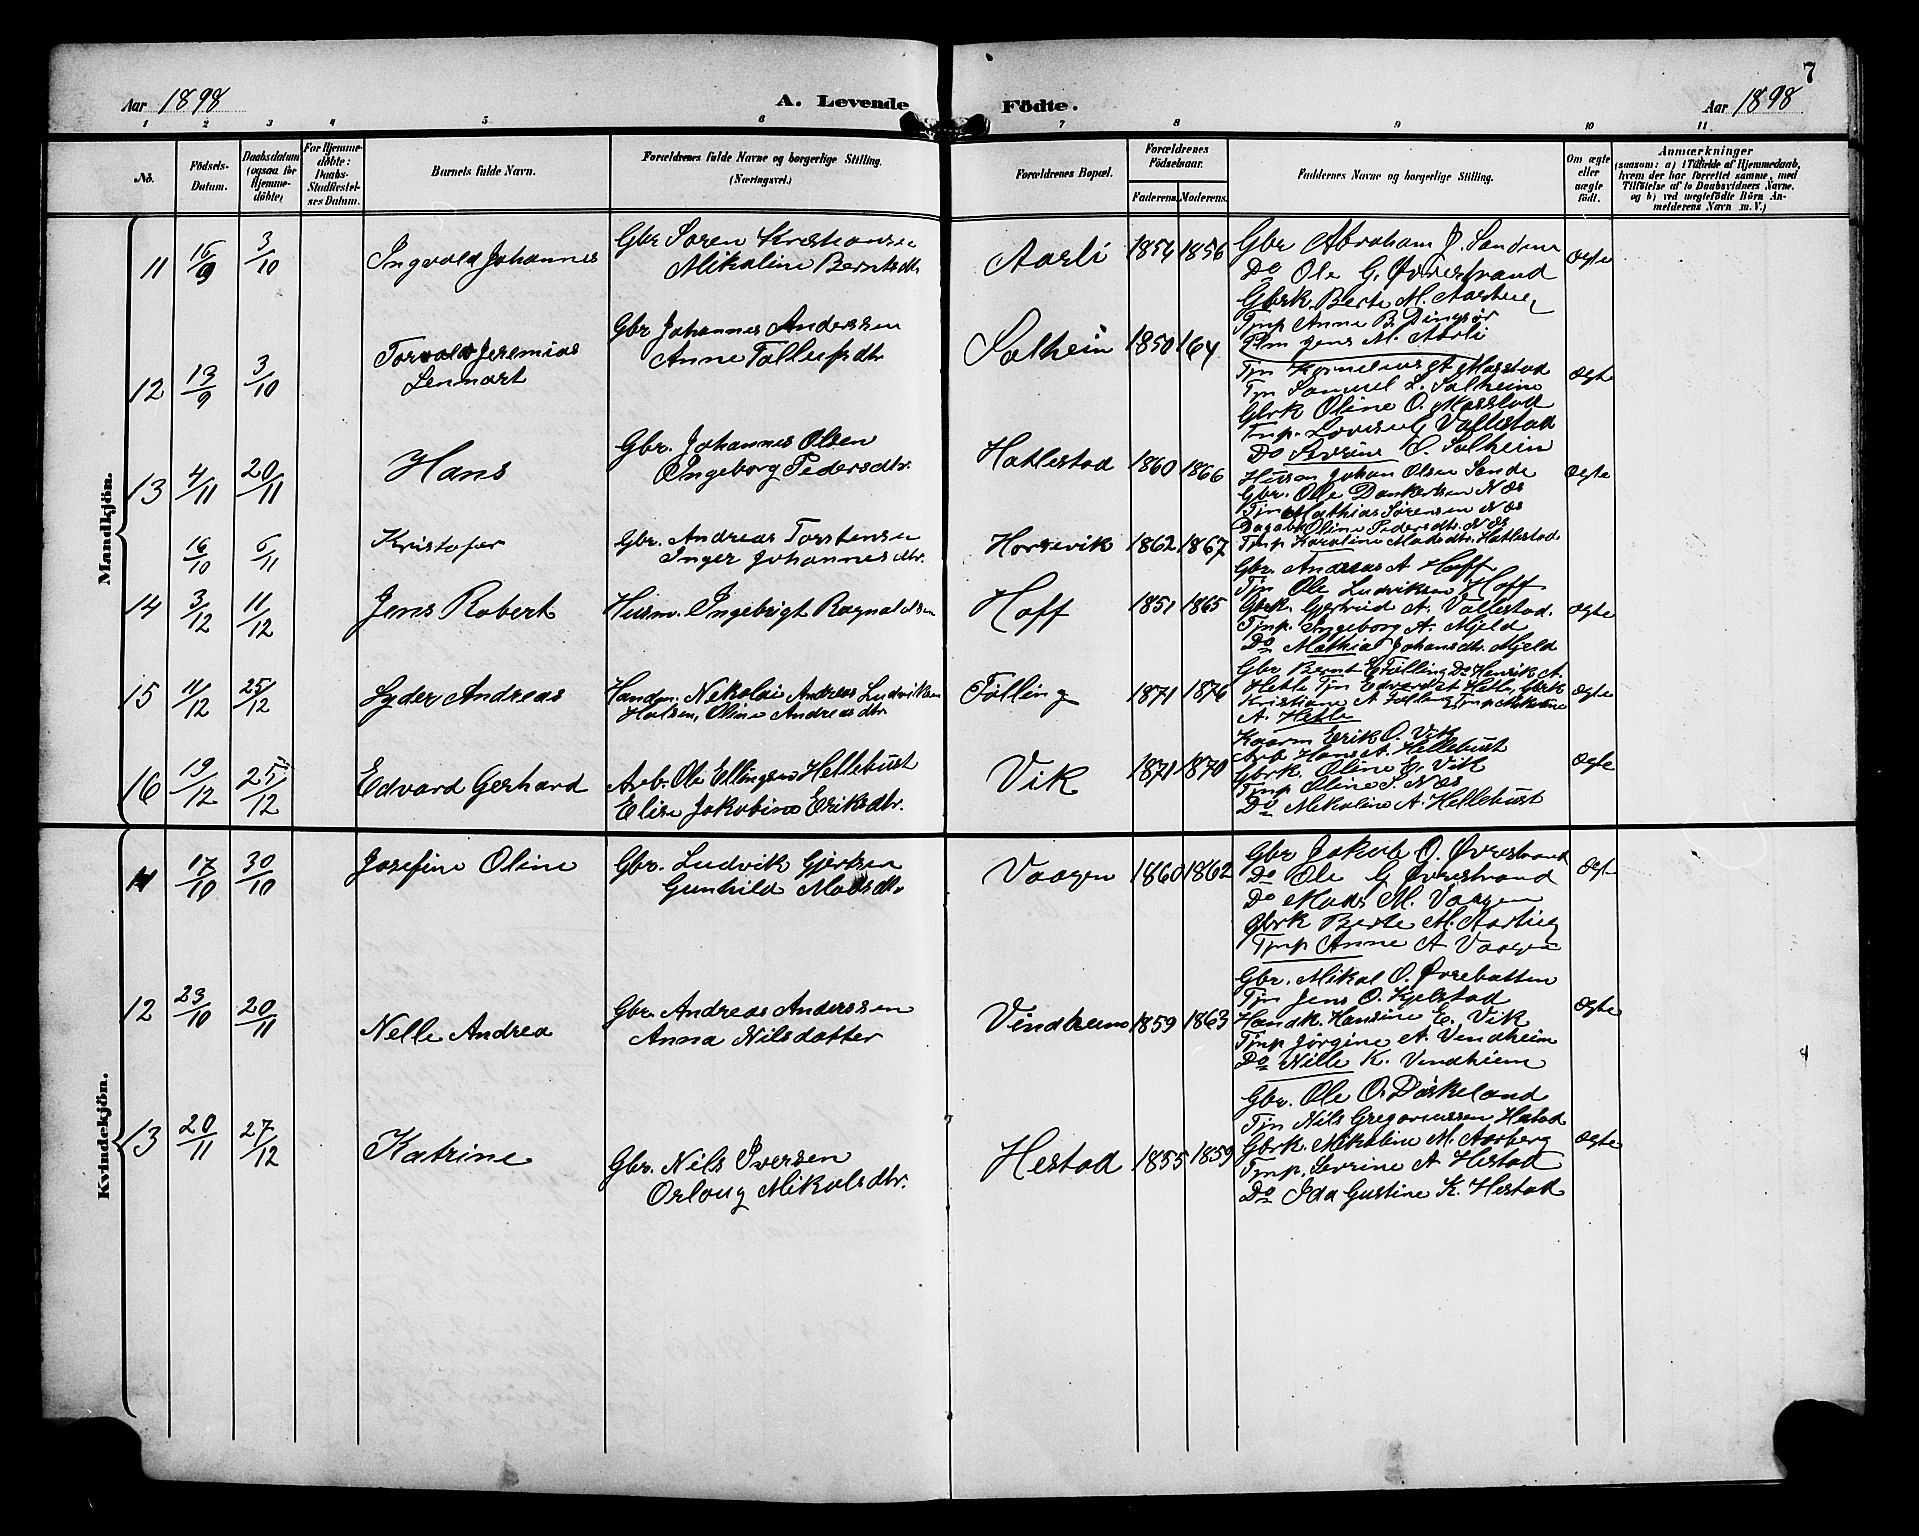 7
Aar 1898 A. Levende Födte. Aar 1898
1 2 3 4 5 6 7 8 9 10 11
No. Födsels-Datum. Daabsdatum (ogsaa for Hjemme-döbte) For Hjemme-döbte: Daabs-Stadfæstel-ses Datum. Barnets fulde Navn. Forældrenes fulde Navne og borgerlige Stilling. (Næringsvei.) Forældrenes Bopæl. Forældrenes Födselsaar. Faderens. Moderens. Faddernes Navne og borgerlige Stilling. Om ægte eller uægte födt. Anmærkninger
(saasom: a) i Tilfælde af Hjemmedaab, hvem der har forrettet samme, med Tilföielse af to Daabsvidners Navne. og b) ved uegtefödte Börn An-melderens Navn m. V.)
Mandkjön.
11 16/9 3/10 Ingvald Johannes Gbr Søren Kristiansen
Mikaline Berntsdtr. Aarli 1854 1856 Gbr Abraham J. Sanden
Do Ole G. Øvrestrand
Gbrk. Berte M. Aarbeig
Tjnp Anne B. Dingsør
Plm Jens M. Aarli
Ægte
12 13/9 3/10 Torvald Jeremias
Lenmart Gbr Johannes Anderssen
Anne Tollefsdtr. Solheim 1850 164 Tjn Kornelius Masstad
Tjn Samuel L. Solheim
Gbrk Oline O. Masstad
Tnp. Lovise Vallestad
Do Severine O. Solheim
Ægte
13 4/11 20/11 Hans Gbr. Johannes Olsen
Ingeborg Pedersdtr. Hatlestad 1860 1866 Husm Johan Olsen Sande
Gbr. Ole Dankertsen Næs
Tjn Mathias Sørensen Næs
Oline Pedersdtr. Næs
Tjnp Karoline Madsdtr. Hatlestad
Ægte
16/10 6/11 Kristofer Gbr. Andreas Torstensen
Inger Johannesdtr. Horsevik 1862 1867
14 3/12 11/12 Jens Robert Husm. Ingebrigt Ragnaldsen Hoff 1851 1865 Gbr. Andreas A Hoff
Tjn Ole Ludviksen Hoff
Gbrk. Gjertrud A. Vallestad.
Tjnp. Ingeborg A. Mjeld
Do Mathia Johansdtr. Mjeld
Ægte
15 11/12 25/12 Lyder Andreas Handm. Nekolai Andreas Ludviksen
Oline Andreasdtr. Tølling 1871 1876 Gbr Bernt E Følling Do Henrik A.
Hetle Tjn Edvard Hetle, Gbrk
Kristiane A Følling Tjnp Mikaline
A. Hetle
Ægte
16 19/12 25/12 Edvard Gerhard Arb. Ole Ellingsen Hellebust
Elise Jakobine Eriksdtr. Vik 1871 1870 Kaarm Erik O. Vik
Arb Hans A. Hellebust
Gbrk. Oline E. Vik
Tjnp Oline S. Næs
Do Mikaline A. Hellebust
Ægte
Kvindekjön.
11 17/10 30/10 Josefine Oline Gbr. Ludvik Gjertsen
Gunhild Madsdtr Vaagen 1860 1862 Gbr Jakob O. Øvrestrand
Do Ole G Øvrestrand
Do Mads M. Vaagen
Gbrk Berte M. Aarbeig
Tjnp Anne A Vaagen
Ægte
12 23/10 20/11 Nelle Andrea Gbr. Andreas Anderssen
Anna Nilsdatter Vindheim 1859 1863 Gbr. Mikal O. Øvrebatten
Tjn Jens O. Kjelstad
Handk. Hansine E. Vik
Tjnp Jørgine A. Vindheim
Do Nille K. Vindheim
Ægte
13 20/11 27/12 Katrine Gbr. Nils Iversen
Orloug Mikalsdtr. Hestad 1855 1859 Gbr. Ole O. Dørkeland
Tjn Nils Gregoriussen Hestad
Gbrk. Mikaline M. Aarberg
Tjnp. Severine A Hestad
Do Ida Gustine K. Hestad
Ægte